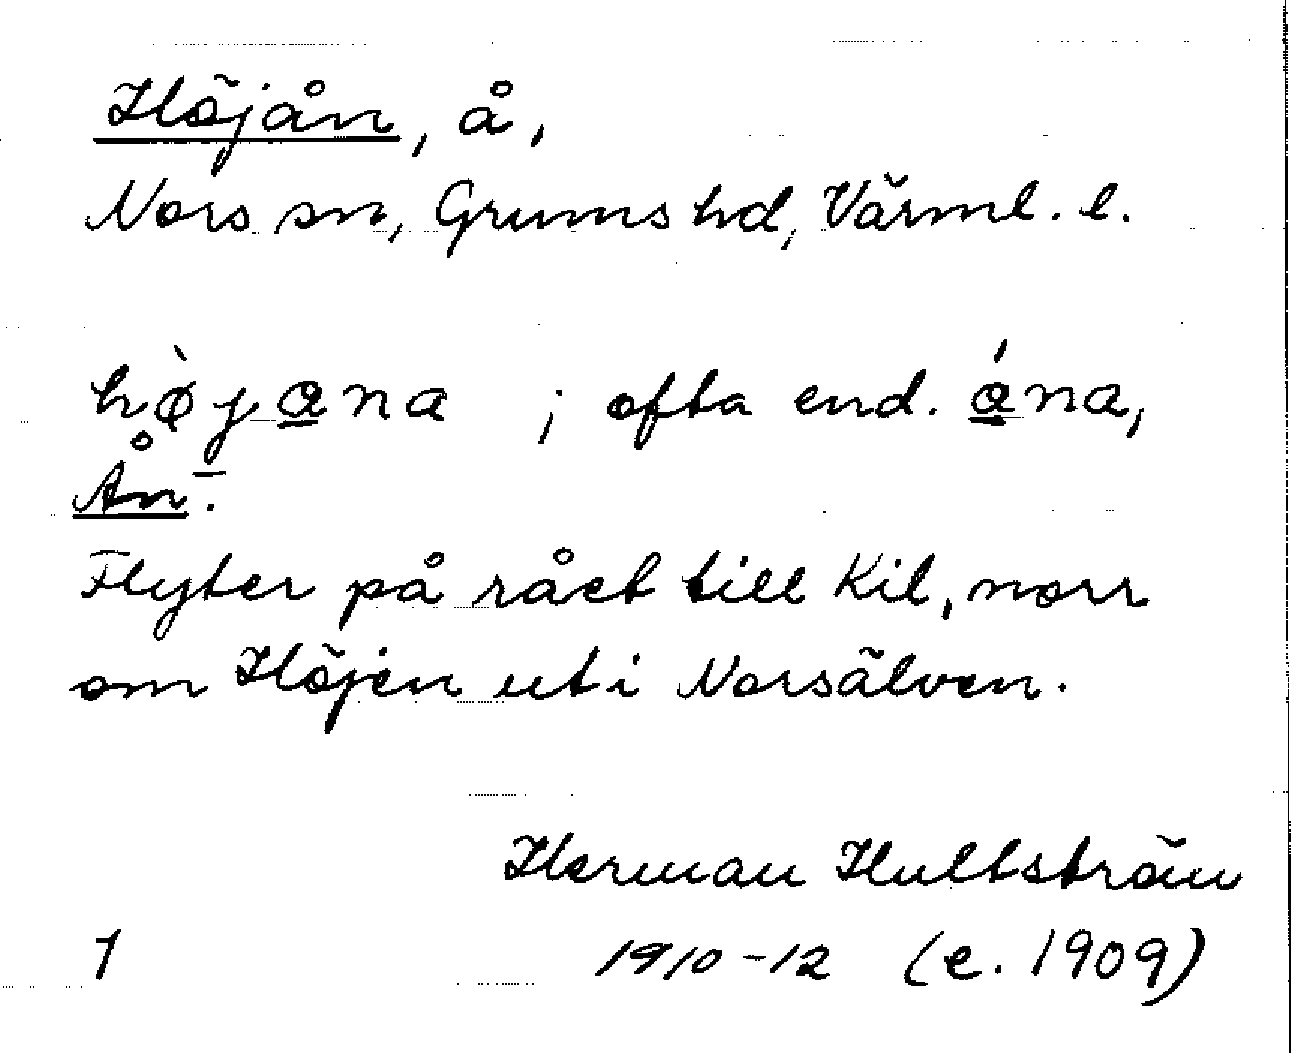 Höjån, å,
Nors sn, Grums hd, Värml. l.
hø̀jana ; ofta end. ána,
Ån.
Flyter på rået till Kil, norr
om Höjen ut i Norsälven.
Herman Hultström
1 1910-12 (e. 1909)